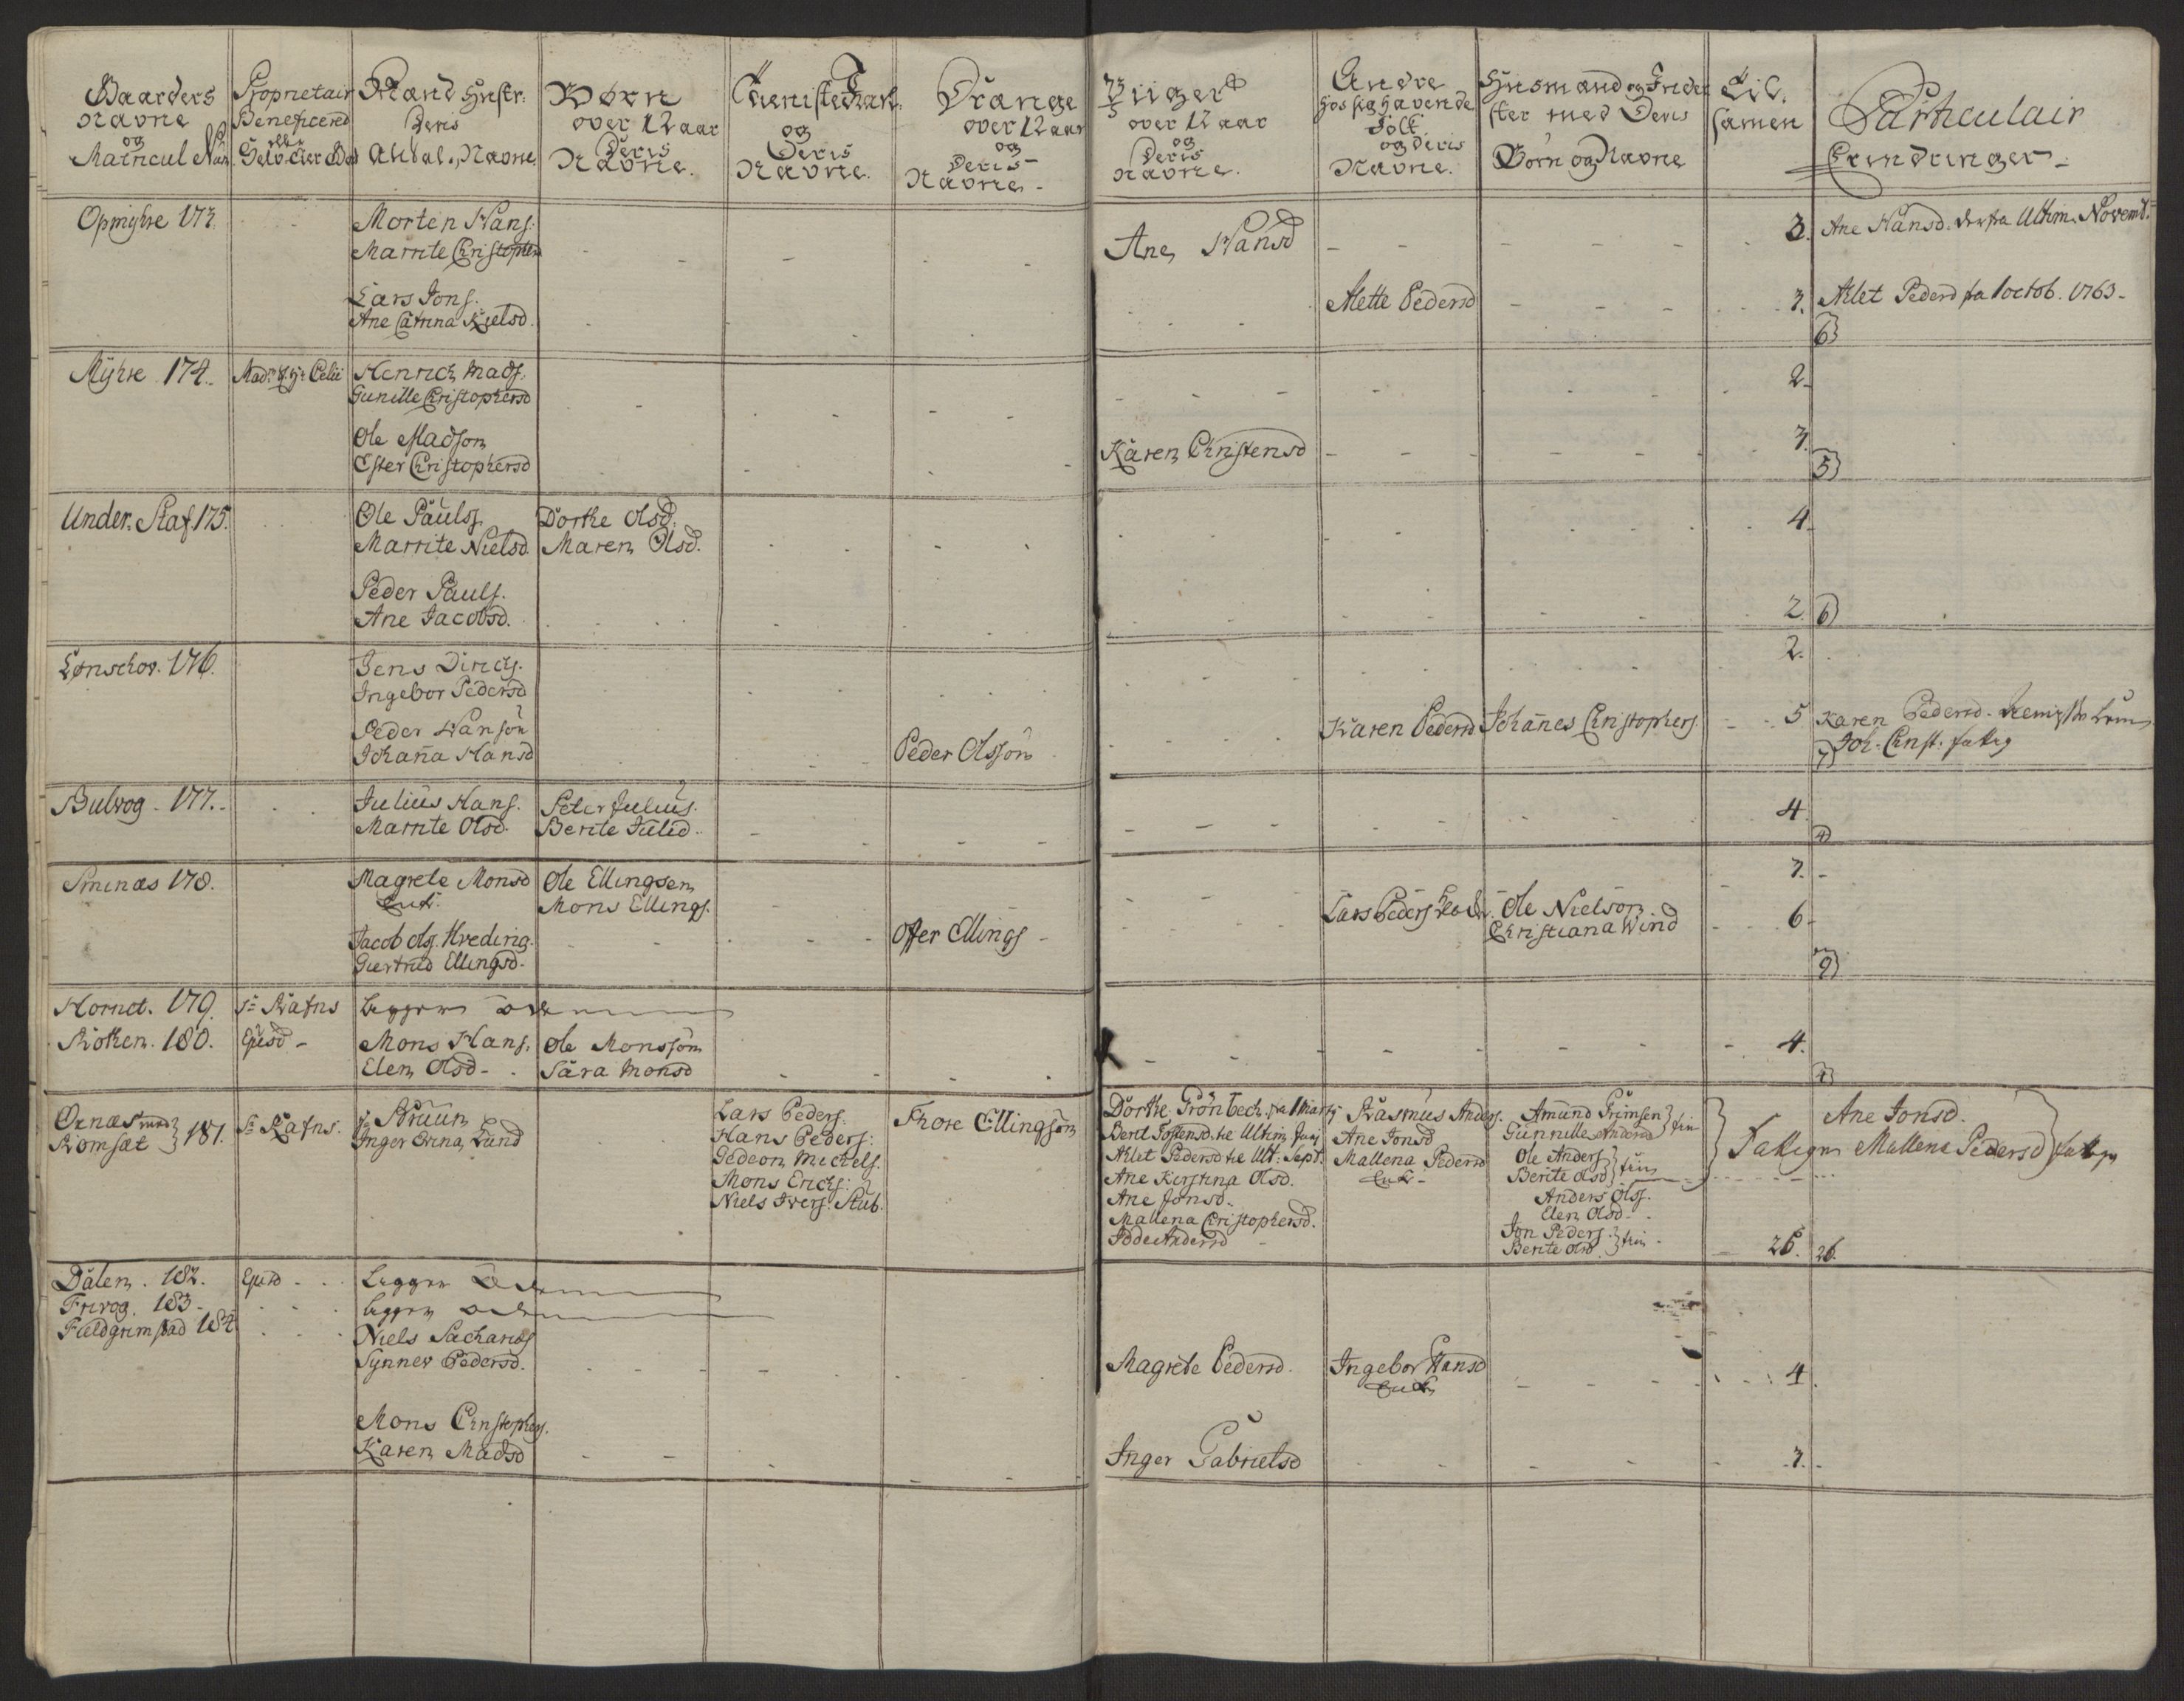 Gaarders Navne og Matricul Nu̅
Proprietair Beneficered eller Selv Eier
Mand Hustr: Deris Andal, Navne
Børn over 12 aar Deris Navne.
Tienistekarl: og Deris Navne.
Drænge over 12 aar og Deris Navne
Piiger over 12 aar og Deris Navne.
Andre hos sig havende Folk og Deris Navne.
Husmænd og Inderster med Deris Børn og Navne
Til samen
Particulair Erindringer
Opmyhre 173.
Morten Hans:
Marrite Christophers
Ane Hansd
3.
Ane Hansd. fra Ultim. Novemb.
Lars Jons.
Ane Catrina Kielsd.
Alette Pedersd
3.
Allet Pedersd fra 1 octob. 1763.
6
Myhre 174.
Henrich Mads.
Gunille Christophersd
2.
Ole Madson
Ester Christophersd
Karen Christensd
3.
5
Under. Staf 175.
Ole Pauls.
Marrite Nielsd.
Dorthe Olsd.
Maren Olsd.
4.
Peder Pauls.
Ane Jacobsd.
2.
6
Lønschov. 176.
Jens Dirchs.
Ingebor Pedersd
2.
Peder Hanson
Johan̅a Hansd
Peder Olsson
Karen Pedersd
Johan̅es Christophers.
5
Karen Pedersd.
Joh. Christ. fattig
7
Bulvog 177.
Julius Hans.
Marrite Olsd.
Peter Julius.
Berite Julid.
4.
4
Sminæs 178.
Magrete Monsd
Enk:
Ole Ellingsen
Mons Ellings.
3.
Jacob Ols. Hveding.
Giertrud Ellingsd.
Offer Ellings
Lars Peders
Ole Nielson
Christiana Wind
6
9
Hornet. 179.
Sr Rafns
Legger øde
Røtken. 180.
Ejusd
Mons Hans.
Elen Olsd
Ole Monsson
Sara Monsd
4.
4
Ørnæs med
Romsæt 181.
Sr Rafns.
Sr Bruun
Inger Erna Lund
Lars Peders.
Hans Peders:
Gedeon Michels.
Mons Erichs:
Niels Ivers. Stub.
Thore Ellingsøn
Dorthe Grönbech fra 1 Marty
Berit Tostensd. til Ultim Juny
Allet Pedersd til Ult: Sept.
Ane Kirstina Olsd.
Ane Jonsd.
Mallena Christophersd.
Andersd
Rasmus Anders.
Ane Jonsd
Mallena Pedersd
Enk
Amund Grimsen
Gunnille Andersd
Ole Anders
Berite Olsd
Anders Ols.
Elen Olsd
Jon Peders.
Berite Olsd
26.
Fattige
Ane Jonsd.
Mallena Pedersd fattige
26.
Dalen. 182.
Ejusd
Legger øde
Frivog. 183
legger øde
Fældgrimstad 184
Niels Sacharias
Synnev Pedersd.
Magrete Pedersd.
Ingebor Hansd
Enk
4.
Mons Christophers.
Karen Madsd
Inger Gabrielsd
3.